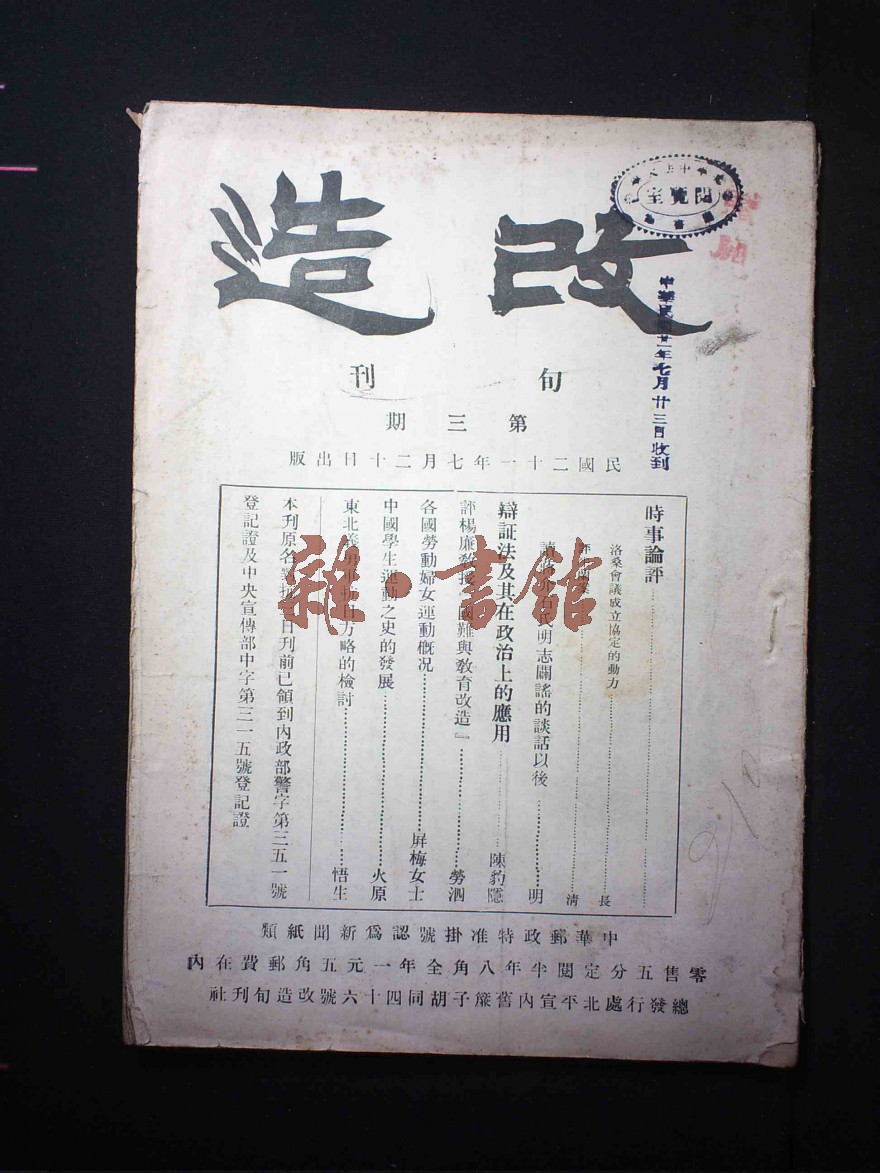 改造
旬刊
第三期
民國二十一年七月二十日出版
閱覽室
中華民國廿一年七月廿三日收到
時事論評
洛桑會議成立協定的動力 長
清
明志闢謠的談話以後 明
辯証法及其在政治上的應用 陳豹隱
評楊廉教授『國難與教育改造』 勞泗
各國勞動婦女運動概況 屏梅女士
中國學生運動之史的發展 火原
東北義勇軍 方略的檢討 悟生
本刊原名 日刊前已領到內政部警字第三五一號
登記證及中央宣傳部中字第三一五號登記證
中華郵政特准掛號認爲新聞紙類
零售五分定閱半年八角全年一元五角郵費在內
總發行處北平宣內舊簾子胡同四十六號改造旬刊社
雜·書館